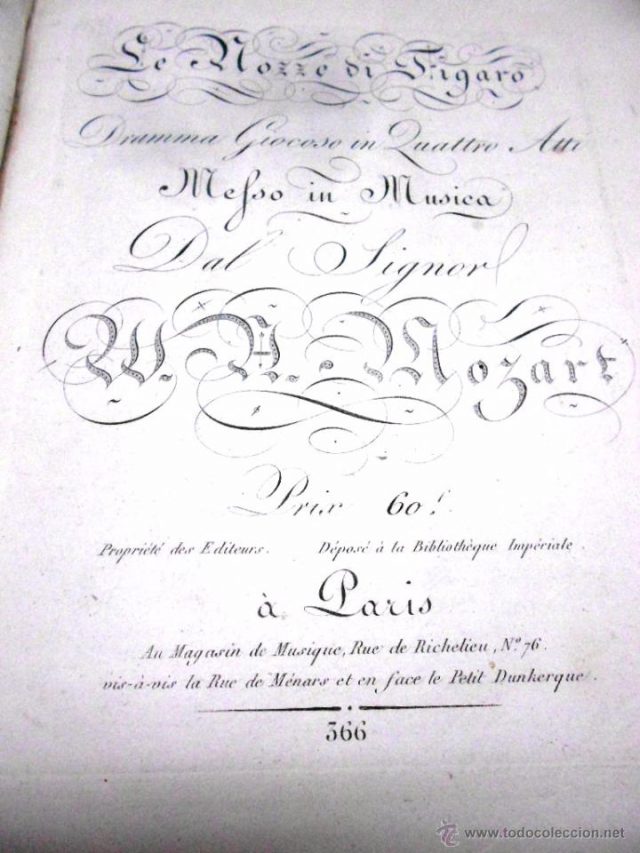 Le Nozze di Figaro
Dramma Giocoso in Quattro Atti
Meſso in Musica
Dal Signor
W. A. Mozart
Prix 60.f
Propriété des Editeurs. Déposé à la Bibliothèque Impériale.
à Paris
Au Magasin de Musique, Rue de Richelieu, N.º 76.
vis-à-vis la Rue de Ménars et en face le Petit Dunkerque.
366
www.todocoleccion.net